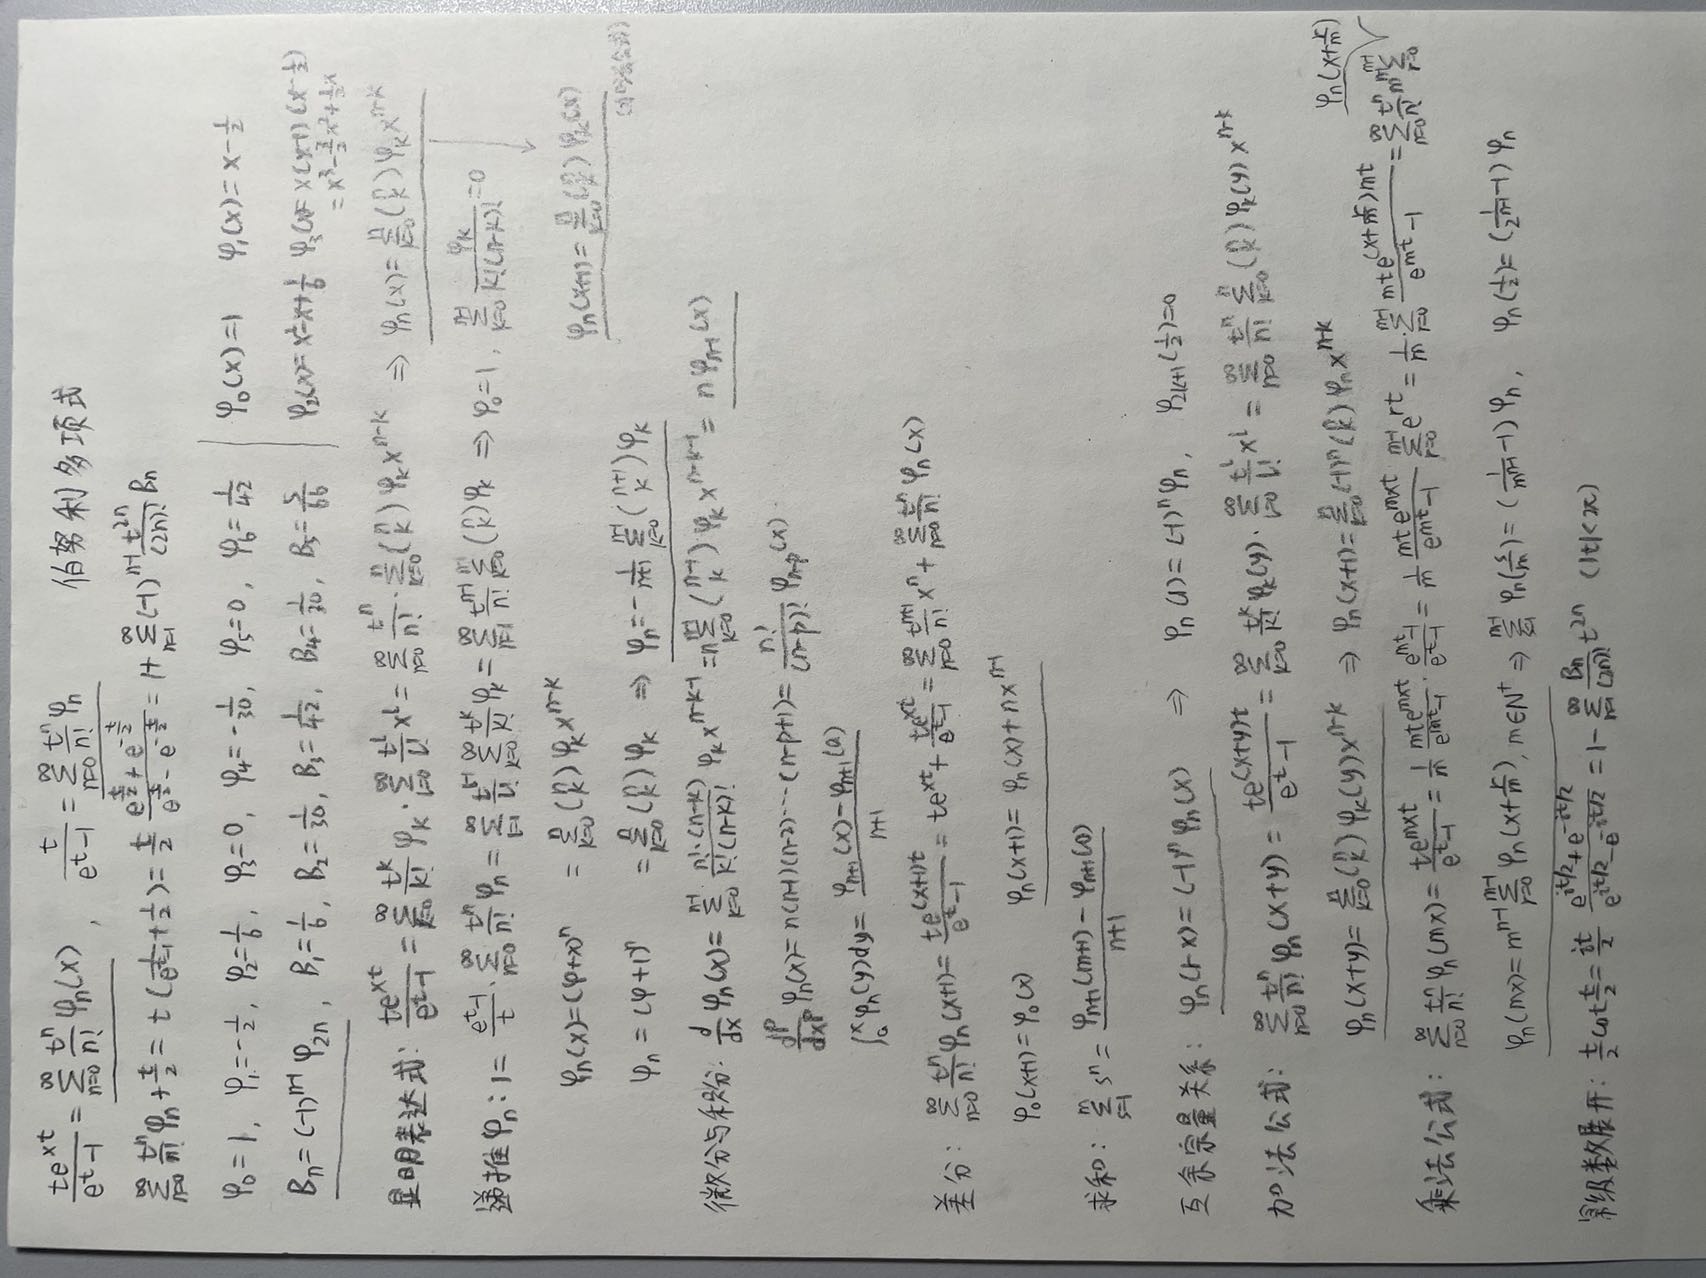 伯努利多项式
te^{xt}/(e^t-1) = ∑_{n=0}^{∞} t^n/n! φ_n(x), t/(e^t-1) = ∑_{n=0}^{∞} t^n/n! φ_n
∑_{n=0}^{∞} t^n/n! φ_n + t/2 = t(1/(e^t-1) + 1/2) = t/2 (e^{t/2}+e^{-t/2})/(e^{t/2}-e^{-t/2}) = 1+∑_{n=1}^{∞} (-1)^{n-1} t^{2n}/(2n)! B_n
φ_0=1, φ_1=-1/2, φ_2=1/6, φ_3=0, φ_4=-1/30, φ_5=0, φ_6=1/42 | φ_0(x)=1 φ_1(x)=x-1/2
B_n=(-1)^{n-1} φ_{2n}, B_1=1/6, B_2=1/30, B_3=1/42, B_4=1/30, B_5=5/66 | φ_2(x)=x^2-x+1/6 φ_3(x)=x(x-1)(x-1/2)
=x^3-3/2x^2+1/2x
显明表达式: te^{xt}/(e^t-1) = ∑_{k=0}^{∞} t^k/k! φ_k · ∑_{l=0}^{∞} t^l/l! x^l = ∑_{n=0}^{∞} t^n/n! · ∑_{k=0}^{n} (n k) φ_k x^{n-k} ⇒ φ_n(x)=∑_{k=0}^{n} (n k) φ_k x^{n-k}
递推φ_n: 1=(e^t-1)/t · ∑_{n=0}^{∞} t^n/n! φ_n = ∑_{l=1}^{∞} t^{l-1}/l! ∑_{k=0}^{∞} t^k/k! φ_k = ∑_{n=1}^{∞} t^{n-1}/n! ∑_{k=0}^{n-1} (n k) φ_k ⇒ φ_0=1, ∑_{k=0}^{n-1} φ_k/(k!(n-k)!)=0
φ_n(x)=(φ+x)^n = ∑_{k=0}^{n} (n k) φ_k x^{n-k} φ_n(x+1)=∑_{k=0}^{n} (n k) φ_k(x)
φ_n=(φ+1)^n = ∑_{k=0}^{n} (n k) φ_k ⇒ φ_n=-1/(n+1) ∑_{k=0}^{n-1} (n+1 k) φ_k
微分与积分: d/dx φ_n(x)=∑_{k=0}^{n-1} n!·(n-k)/(k!(n-k)!) φ_k x^{n-k-1} =n∑_{k=0}^{n-1} (n-1 k) φ_k x^{n-k-1} = nφ_{n-1}(x)
d^p/dx^p φ_n(x)=n(n-1)(n-2)···(n-p+1)=n!/(n-p)! φ_{n-p}(x).
∫_a^x φ_n(y)dy=(φ_{n+1}(x)-φ_{n+1}(a))/(n+1)
差分: ∑_{n=0}^{∞} t^n/n! φ_n(x+1)=te^{(x+1)t}/(e^t-1) = te^{xt}+te^{xt}/(e^t-1) = ∑_{n=0}^{∞} t^{n+1}/n! x^n + ∑_{n=0}^{∞} t^n/n! φ_n(x)
φ_0(x+1)=φ_0(x) φ_n(x+1)=φ_n(x)+nx^{n-1}
求和: ∑_{s=1}^{m} s^n = (φ_{n+1}(m+1)-φ_{n+1}(0))/(n+1)
互余宗量关系: φ_n(1-x)=(-1)^n φ_n(x) ⇒ φ_n(1)=(-1)^n φ_n, φ_{2k+1}(1/2)=0
加法公式: ∑_{n=0}^{∞} t^n/n! φ_n(x+y)=te^{(x+y)t}/(e^t-1) = ∑_{k=0}^{∞} t^k/k! φ_k(y)·∑_{l=0}^{∞} t^l/l! x^l = ∑_{n=0}^{∞} t^n/n! ∑_{k=0}^{n} (n k) φ_k(y) x^{n-k}
φ_n(x+y)=∑_{k=0}^{n} (n k) φ_k(y)x^{n-k} ⇒ φ_n(x+1)=∑_{k=0}^{n} (-1)^n (n k) φ_n x^{n-k}
乘法公式: ∑_{n=0}^{∞} t^n/n! φ_n(mx)=te^{mxt}/(e^t-1)=1/m mte^{mxt}/(e^{mt}-1)·(e^{mt}-1)/(e^t-1)=1/m mte^{mxt}/(e^{mt}-1) ∑_{r=0}^{m-1} e^{rt}=1/m ∑_{r=0}^{m-1} mte^{(x+r/m)mt}/(e^{mt}-1)=∑_{n=0}^{∞} t^n/n! m^{n-1} ∑_{r=0}^{m-1} φ_n(x+r/m)
φ_n(mx)=m^{n-1}∑_{r=0}^{m-1} φ_n(x+r/m), m∈N^+ ⇒ ∑_{s=1}^{m-1} φ_n(s/m)=(1/m^{n-1}-1)φ_n, φ_n(1/2)=(1/2^{n-1}-1)φ_n
幂级数展开: t/2 cot t/2 = it/2 (e^{it/2}+e^{-it/2})/(e^{it/2}-e^{-it/2}) = 1-∑_{n=1}^{∞} B_n/(2n)! t^{2n} (|t|<π)